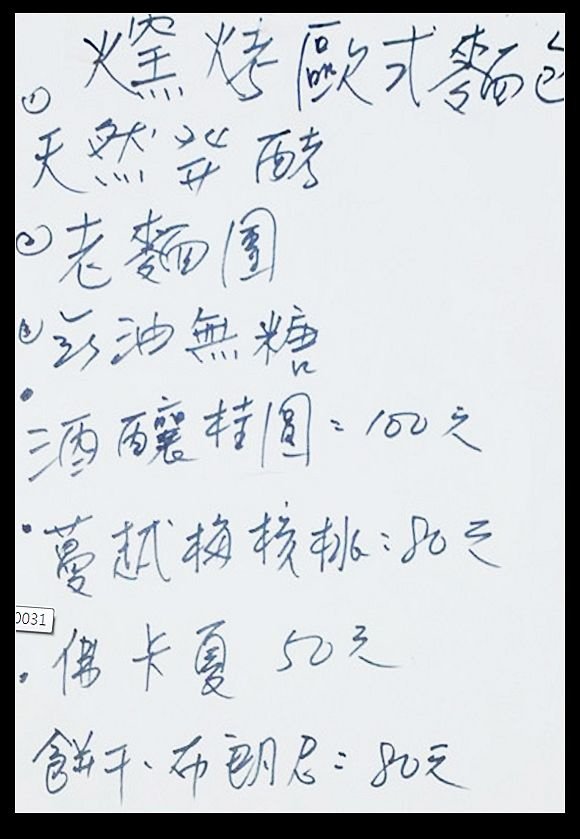 窯烤歐式麵包
① 天然発酵
② 老麵團
③ 無油無糖
• 酒釀桂圓=100元
• 蔓越梅核桃:80元
0031
• 佛卡夏 50元
餅干、布朗尼=80元